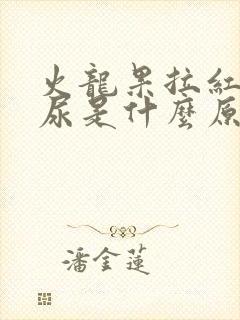 火龍果拉紅
尿是什麼原
潘金蓮